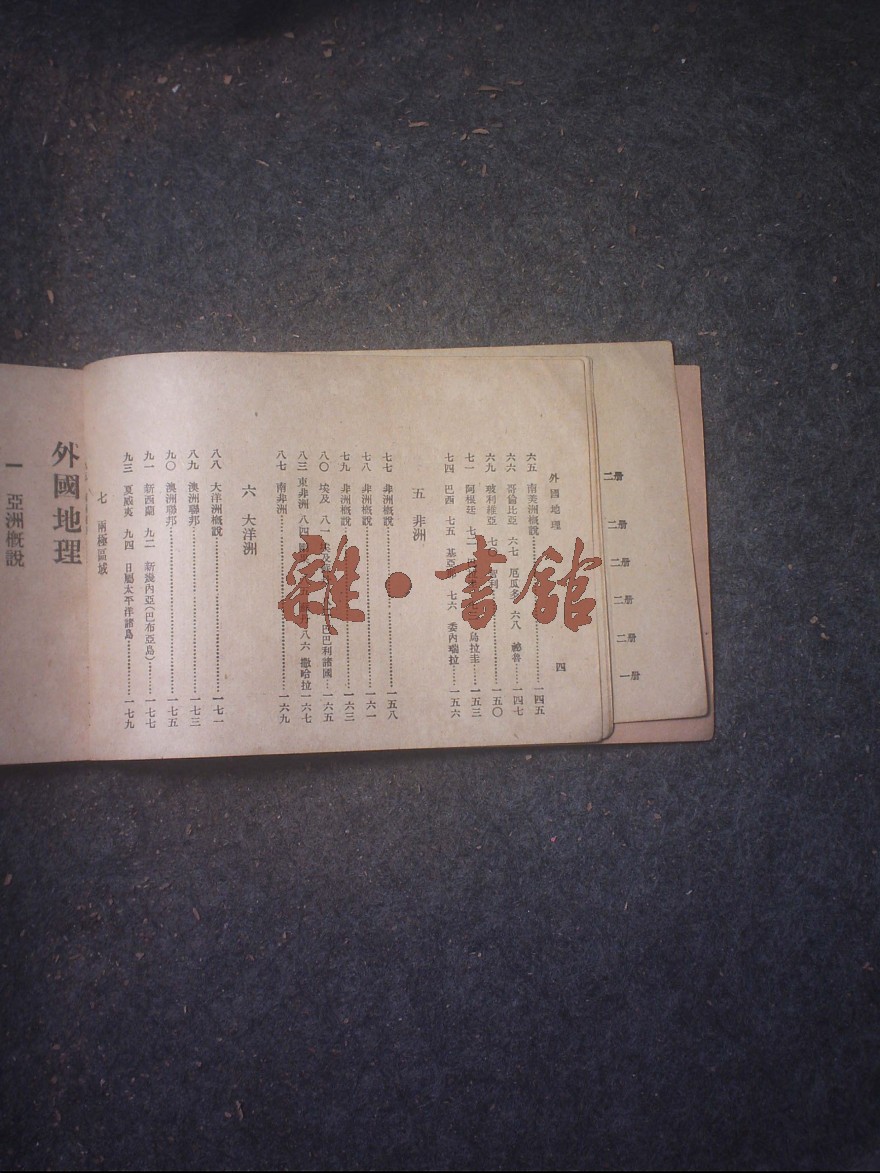 二册
二册
二册
二册
二册
一册
外國地理 四
六五 南美洲概說…一四五
六六 哥倫比亞 六七 厄瓜多 六八 祕魯…一四七
六九 玻利維亞 七〇 智利…一五〇
七一 阿根廷 七二 烏拉圭…一五三
七四 巴西 七五 基亞 七六 委內瑞拉…一五六
五 非洲
七七 非洲概說…一五八
七八 非洲概說…一六一
七九 非洲概說…一六三
八〇 埃及 八一 巴巴利諸國…一六五
八三 東非洲 八四 八六 撒哈拉…一六七
八七 南非洲…一六九
六 大洋洲
八八 大洋洲概說…一七一
八九 澳洲聯邦…一七三
九〇 澳洲聯邦…一七五
九一 新西蘭 九二 新幾內亞(巴布亞島)…一七七
九三 夏威夷 九四 日屬太平洋諸島…一七九
七 兩極區域
外國地理
一 亞洲概說
雜·書館